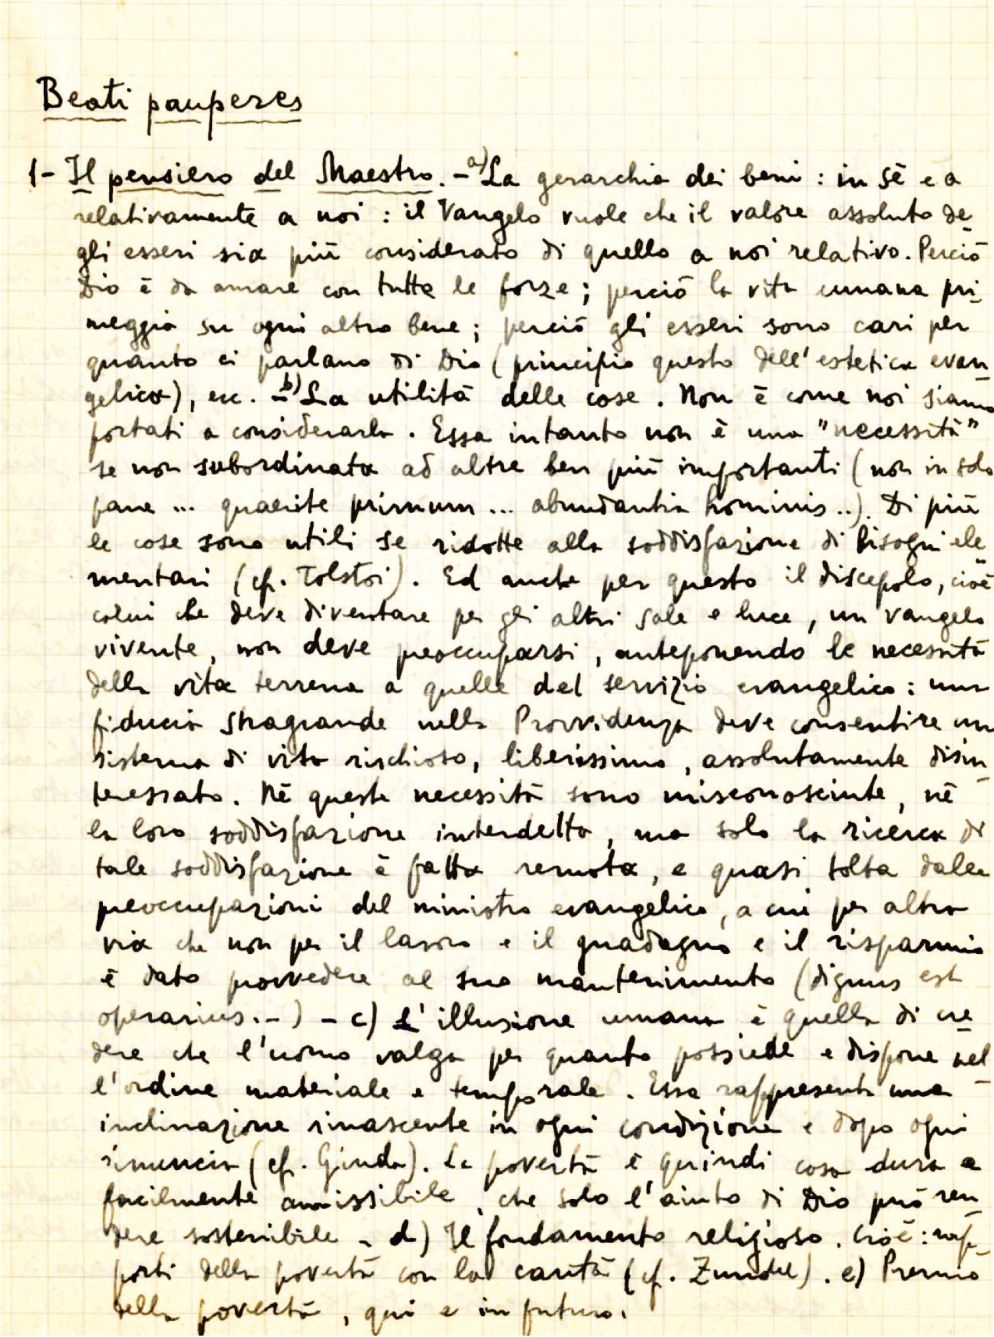 Beati pauperes
1- Il pensiero del Maestro. - a) La gerarchia dei beni: in sè e a
relativamente a noi: il Vangelo vuole che il valore assoluto de
gli esseri sia più considerato di quello a noi relativo. Perciò
Dio è da amare con tutte le forze; perciò la vita umana pri
meggia su ogni altro bene; perciò gli esseri sono cari per
quanto ci parlano di Dio (principio questo dell'estetica evan
gelica), ecc. - b) La utilità delle cose. Non è come noi siamo
portati a considerarla. Essa intanto non è una "necessità"
se non subordinata ad altre ben più importanti (non in solo
pane ... quaerite primum ... abundantia hominis ..). Di più
le cose sono utili se ridotte alla soddisfazione di bisogni ele
mentari (cf. Tolstoi). Ed anche per questo il discepolo, cioè
colui che deve diventare per gli altri sale e luce, un vangelo
vivente, non deve preoccuparsi, anteponendo le necessità
della vita terrena a quelle del servizio evangelico: una
fiducia stragrande nella Provvidenza deve consentire un
sistema di vita rischioso, liberissimo, assolutamente disin
teressato. Nè queste necessità sono misconosciute, nè
la loro soddisfazione interdetta, ma solo la ricerca di
tale soddisfazione è fatta remota, e quasi tolta dalle
preoccupazioni del ministro evangelico, a cui per altra
via che non per il lavoro e il guadagno e il risparmio
è dato provvedere al suo mantenimento (dignus est
operarius. -) - c) L'illusione umana è quella di cre
dere che l'uomo valga per quanto possiede e dispone nel
l'ordine materiale e temporale. Essa rappresenta una
inclinazione rinascente in ogni condizione e dopo ogni
rinuncia (cf. Giuda). La povertà è quindi cosa dura e
facilmente amissibile, che solo l'aiuto di Dio può ren
dere sostenibile - d) Il fondamento religioso. Cioè: rap
porti della povertà con la carità (cf. Zundel). e) Premio
della povertà, qui e in futuro.